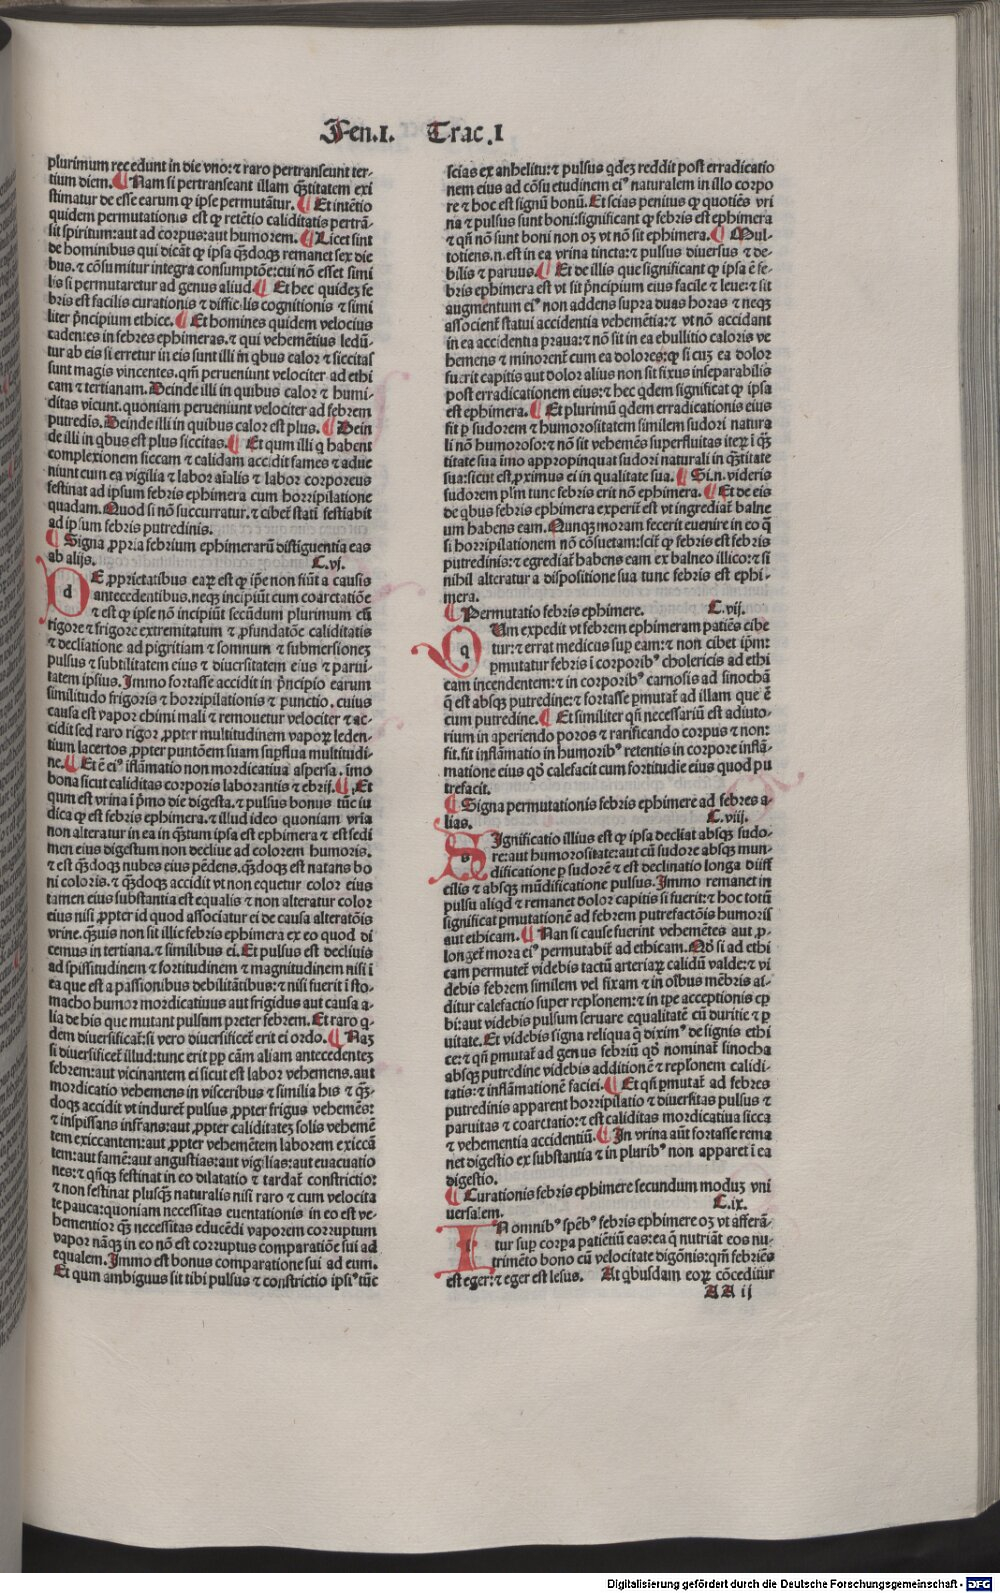 Fen.I. Trac.I
plurimum recedunt in die vno:⁊ raro pertranseunt ter-
tium diem. ¶ Nam si pertranseant illam q̄ꝫtitatem exi
stimatur de esse earum ꝙ ipse permutātur. ¶ Et intētio
quidem permutationis est ꝙ retētio caliditatis pertrā-
sit spiritum:aut ad corpus:aut humorem. ¶ Licet sint
de hominibus qui dicāt ꝙ ipsa q̄ꝫdoqꝫ remanet sex die
bus.⁊ cōsumitur integra consumptōe:cui nō esset simi
lis si permutaretur ad genus aliud ¶ Et hec quideꝫ fe
bris est facilis curationis ⁊ difficilis cognitionis ⁊ simi
liter p̄ncipium ethice. ¶ Et homines quidem velocius
cadentes in febres ephimeras.⁊ qui vehemētius ledū-
tur ab eis si erretur in eis sunt illi in qbus calor ⁊ siccitas
sunt magis vincentes.qm̄ perueniunt velociter ad ethi
cam ⁊ tertianam. Deinde illi in quibus calor ⁊ humi-
ditas vicunt.quoniam perueniunt velociter ad febrem
putredis. Deinde illi in quibus calor est plus. ¶ Dein
de illi in qbus est plus siccitas. ¶ Et qum illi q habent
complexionem siccam ⁊ calidam accidit fames ⁊ adue
niunt cum ea vigilia ⁊ labor aīalis ⁊ labor corporeus
festinat ad ipsum febris ephimera cum horripilatione
quadam. Quod si nō succurratur.⁊ cibet̄ statī festīabit
ad ipsum febris putredinis.
¶ Signa ꝓpria febrium ephimerarū distiguentia eas
ab alijs. C.vj.
DE ꝓprietatibus eaꝝ est ꝙ ip̄e non fiūt a causis
antecedentibus.neqꝫ incipiūt cum coarctatiōe
⁊ est ꝙ ipse nō incipiūt secūdum plurimum cū
rigore ⁊ frigore extremitatum ⁊ ꝓfundatōe caliditatis
⁊ decliatione ad pigritiam ⁊ somnum ⁊ submersioneꝫ
pulsus ⁊ subtilitatem eius ⁊ diuersitatem eius ⁊ parui-
tatem ipsius. Immo fortasse accidit in p̄ncipio earum
similitudo frigoris ⁊ horripilationis ⁊ punctio.cuius
causa est vapor chimi mali ⁊ remouetur velociter ⁊ ac-
cidit sed raro rigor ꝓpter multitudinem vaporꝝ leden-
tium lacertos ꝓpter puntōem suam supflua multitudi-
ne. ¶ Et ē ei⁹ iflāmatio non mordicatiua aspersa.imo
bona sicut caliditas corporis laborantis ⁊ ebrij. ¶ Et
qum est vrina i p̄mo die digesta.⁊ pulsus bonus tūc iu
dica ꝙ est febris ephimera.⁊ illud ideo quoniam vrīa
non alteratur in ea in q̄ꝫtum ipsa est ephimera ⁊ est sedi
men eius digestum non decliue ad colorem humoris.
⁊ est q̄ꝫdoqꝫ nubes eius pēdens.q̄ꝫdoqꝫ est natans bo
ni coloris.⁊ q̄ꝫdoqꝫ accidit vt non equetur color eius
tamen eius substantia est equalis ⁊ non alteratur color
eius nisi ꝓpter id quod associatur ei de causa alteratōis
vrine.q̄ꝫuis non sit illic febris ephimera ex eo quod di
cemus in tertiana.⁊ similibus ei. Et pulsus est decliuis
ad spissitudinem ⁊ fortitudinem ⁊ magnitudinem nisi ī
ea que est a passionibus debilitātibus:⁊ nisi fuerit ī sto-
macho humor mordicatiuus aut frigidus aut causa a-
lia de his que mutant pulsum preter febrem. Et raro q-
dem diuersificat̄:si vero diuersificet̄ erit ei ordo. ¶ Naꝫ
si diuersificet̄ illud:tunc erit ꝓp cām aliam antecedenteꝫ
febrem:aut vicinantem ei sicut est labor vehemens.aut
mordicatio vehemens in visceribus ⁊ similia his ⁊ q̄ꝫ-
doqꝫ accidit vt induret̄ pulsus ꝓpter frigus vehemēs:
⁊ inspissans infrans:aut ꝓpter caliditateꝫ solis vehemē
tem exiccantem:aut ꝓpter vehemētem laborem exiccā
tem:aut famē:aut angustias:aut vigilias:aut euacuatio
nes:⁊ qn̄qꝫ festinat in eo dilatatio ⁊ tardat̄ constrictio:
⁊ non festinat plusqꝫ naturalis nisi raro ⁊ cum velocita
te pauca:quoniam necessitas euentationis in eo est ve-
hementior qꝫ necessitas educēdi vaporem corruptum
vapor nāqꝫ in eo nō est corruptus comparatiōe sui ad
equalem. Immo est bonus comparatione sui ad eum.
Et qum ambiguus sit tibi pulsus ⁊ constrictio ipsi⁹ tūc
scias ex anhelitu:⁊ pulsus qdeꝫ reddit post erradicatio
nem eius ad cōsuetudinem ei⁹ naturalem in illo corpo
re ⁊ hoc est signū bonū. Et scias penitus ꝙ quotiēs vri
na ⁊ pulsus sunt boni:significant ꝙ febris est ephimera
⁊ qn̄ nō sunt boni non oꝫ vt nō sit ephimera. ¶ Mul-
totiens.n.est in ea vrina tincta:⁊ pulsus diuersus ⁊ de-
bilis ⁊ paruus. ¶ Et de illis que significant ꝙ ipsa ē fe-
bris ephimera est vt sit p̄ncipium eius facile ⁊ leue:⁊ sit
augmentum ei⁹ non addens supra duas horas ⁊ neqꝫ
associent̄ statui accidentia vehemētia:⁊ vt nō accidant
in ea accidentia praua:⁊ nō sit in ea ebullitio caloris ve
hemens ⁊ minorent̄ cum ea dolores:ꝙ si cuꝫ ea dolor
fuerit capitis aut dolor alius non sit fixus inseparabilis
post erradicationem eius:⁊ hec qdem significat ꝙ ipsa
est ephimera. ¶ Et plurimū qdem erradicationis eius
fit p sudorem ⁊ humorositatem similem sudori natura
li nō humoroso:⁊ nō sit vehemēs superfluitas iteꝝ ī q̄ꝫ
titate sua īmo appropinquat sudori naturali in q̄ꝫtitate
sua:sicut est ꝓximus ei in qualitate sua. ¶ Si.n.videris
sudorem plm̄ tunc febris erit nō ephimera. ¶ Et de eis
de qbus febris ephimera experit̄ est vt ingrediat̄ balne
um habens eam. Nunqꝫ moram fecerit euenire in eo q̄
si horripilationem nō cōsuetam:scit̄ ꝙ febris est febris
putredinis:⁊ egrediat̄ habens eam ex balneo illico:⁊ si
nihil alteratur a dispositione sua tunc febris est ephi-
mera.
¶ Permutatio febris ephimere. C.vij.
QUm expedit vt febrem ephimeram patiēs cibe
tur:⁊ errat medicus sup eam:⁊ non cibet ip̄m:
pmutatur febris ī corporib⁹ cholericis ad ethi
cam incendentem:⁊ in corporib⁹ carnosis ad sinochā
q̄ est absqꝫ putredine:⁊ fortasse pmutat̄ ad illam que ē
cum putredine. ¶ Et similiter qn̄ necessariū est adiuto-
rium in aperiendo poros ⁊ rarificando corpus ⁊ non:
fit.fit inflāmatio in humorib⁹ retentis in corpore inflā-
matione eius qd̄ calefacit cum fortitudie eius quod pu
trefacit.
¶ Signa permutationis febris ephimere ad febres a-
lias. C.viij.
SIgnificatio illius est ꝙ ipsa decliat absqꝫ sudo-
re:aut humorositate:aut cū sudore absqꝫ mun-
dificatione p sudorē ⁊ est declinatio longa diff
cilis ⁊ absqꝫ mūdificatione pulsus. Immo remanet in
pulsu aliqd ⁊ remanet dolor capitis si fuerit:⁊ hoc totū
significat pmutationē ad febrem putrefactōis humoris
aut ethicam. ¶ Nan si cause fuerint vehemētes aut ꝓ-
longet̄ mora ei⁹ permutabit̄ ad ethicam. Qd̄ si ad ethi
cam permutet̄ videbis tactū arteriaꝝ calidū valde:⁊ vi
debis febrem similem vel fixam ⁊ in oībus mēbris ad-
ditur calefactio super repl̄onem:⁊ in tp̄e acceptionis cp
bi:aut videbis pulsum seruare equalitatē cū duritie ⁊ p
uitate. Et videbis signa reliqua q̄ dixim⁹ de signis ethi
ce:⁊ qn̄ pmutat̄ ad genus febriū qd̄ nominat̄ sinocha
absqꝫ putredine videbis additionē ⁊ repl̄onem calidi-
tatis:⁊ inflāmationē faciei. ¶ Et qn̄ pmutat̄ ad febres
putredinis apparent horripilatio ⁊ diuersitas pulsus ⁊
paruitas ⁊ coarctatio:⁊ est caliditas mordicatiua sicca
⁊ vehementia accidentiū. ¶ In vrina aūt fortasse rema
net digestio ex substantia ⁊ in plurib⁹ non apparet ī ea
digestio.
¶ Curationis febris ephimere secundum moduꝫ vni
uersalem. C.ix.
IN omnib⁹ spēb⁹ febris ephimere oꝫ vt afferā-
tur sup corpa patiētiū eas:ea q nutriāt eos nu-
trimēto bono cū velocitate digōnis:qm̄ febriēs
est eger:⁊ eger est lesus. At qbusdam eoꝝ cōceditur
AA ij
Digitalisierung gefördert durch die Deutsche Forschungsgemeinschaft - DFG